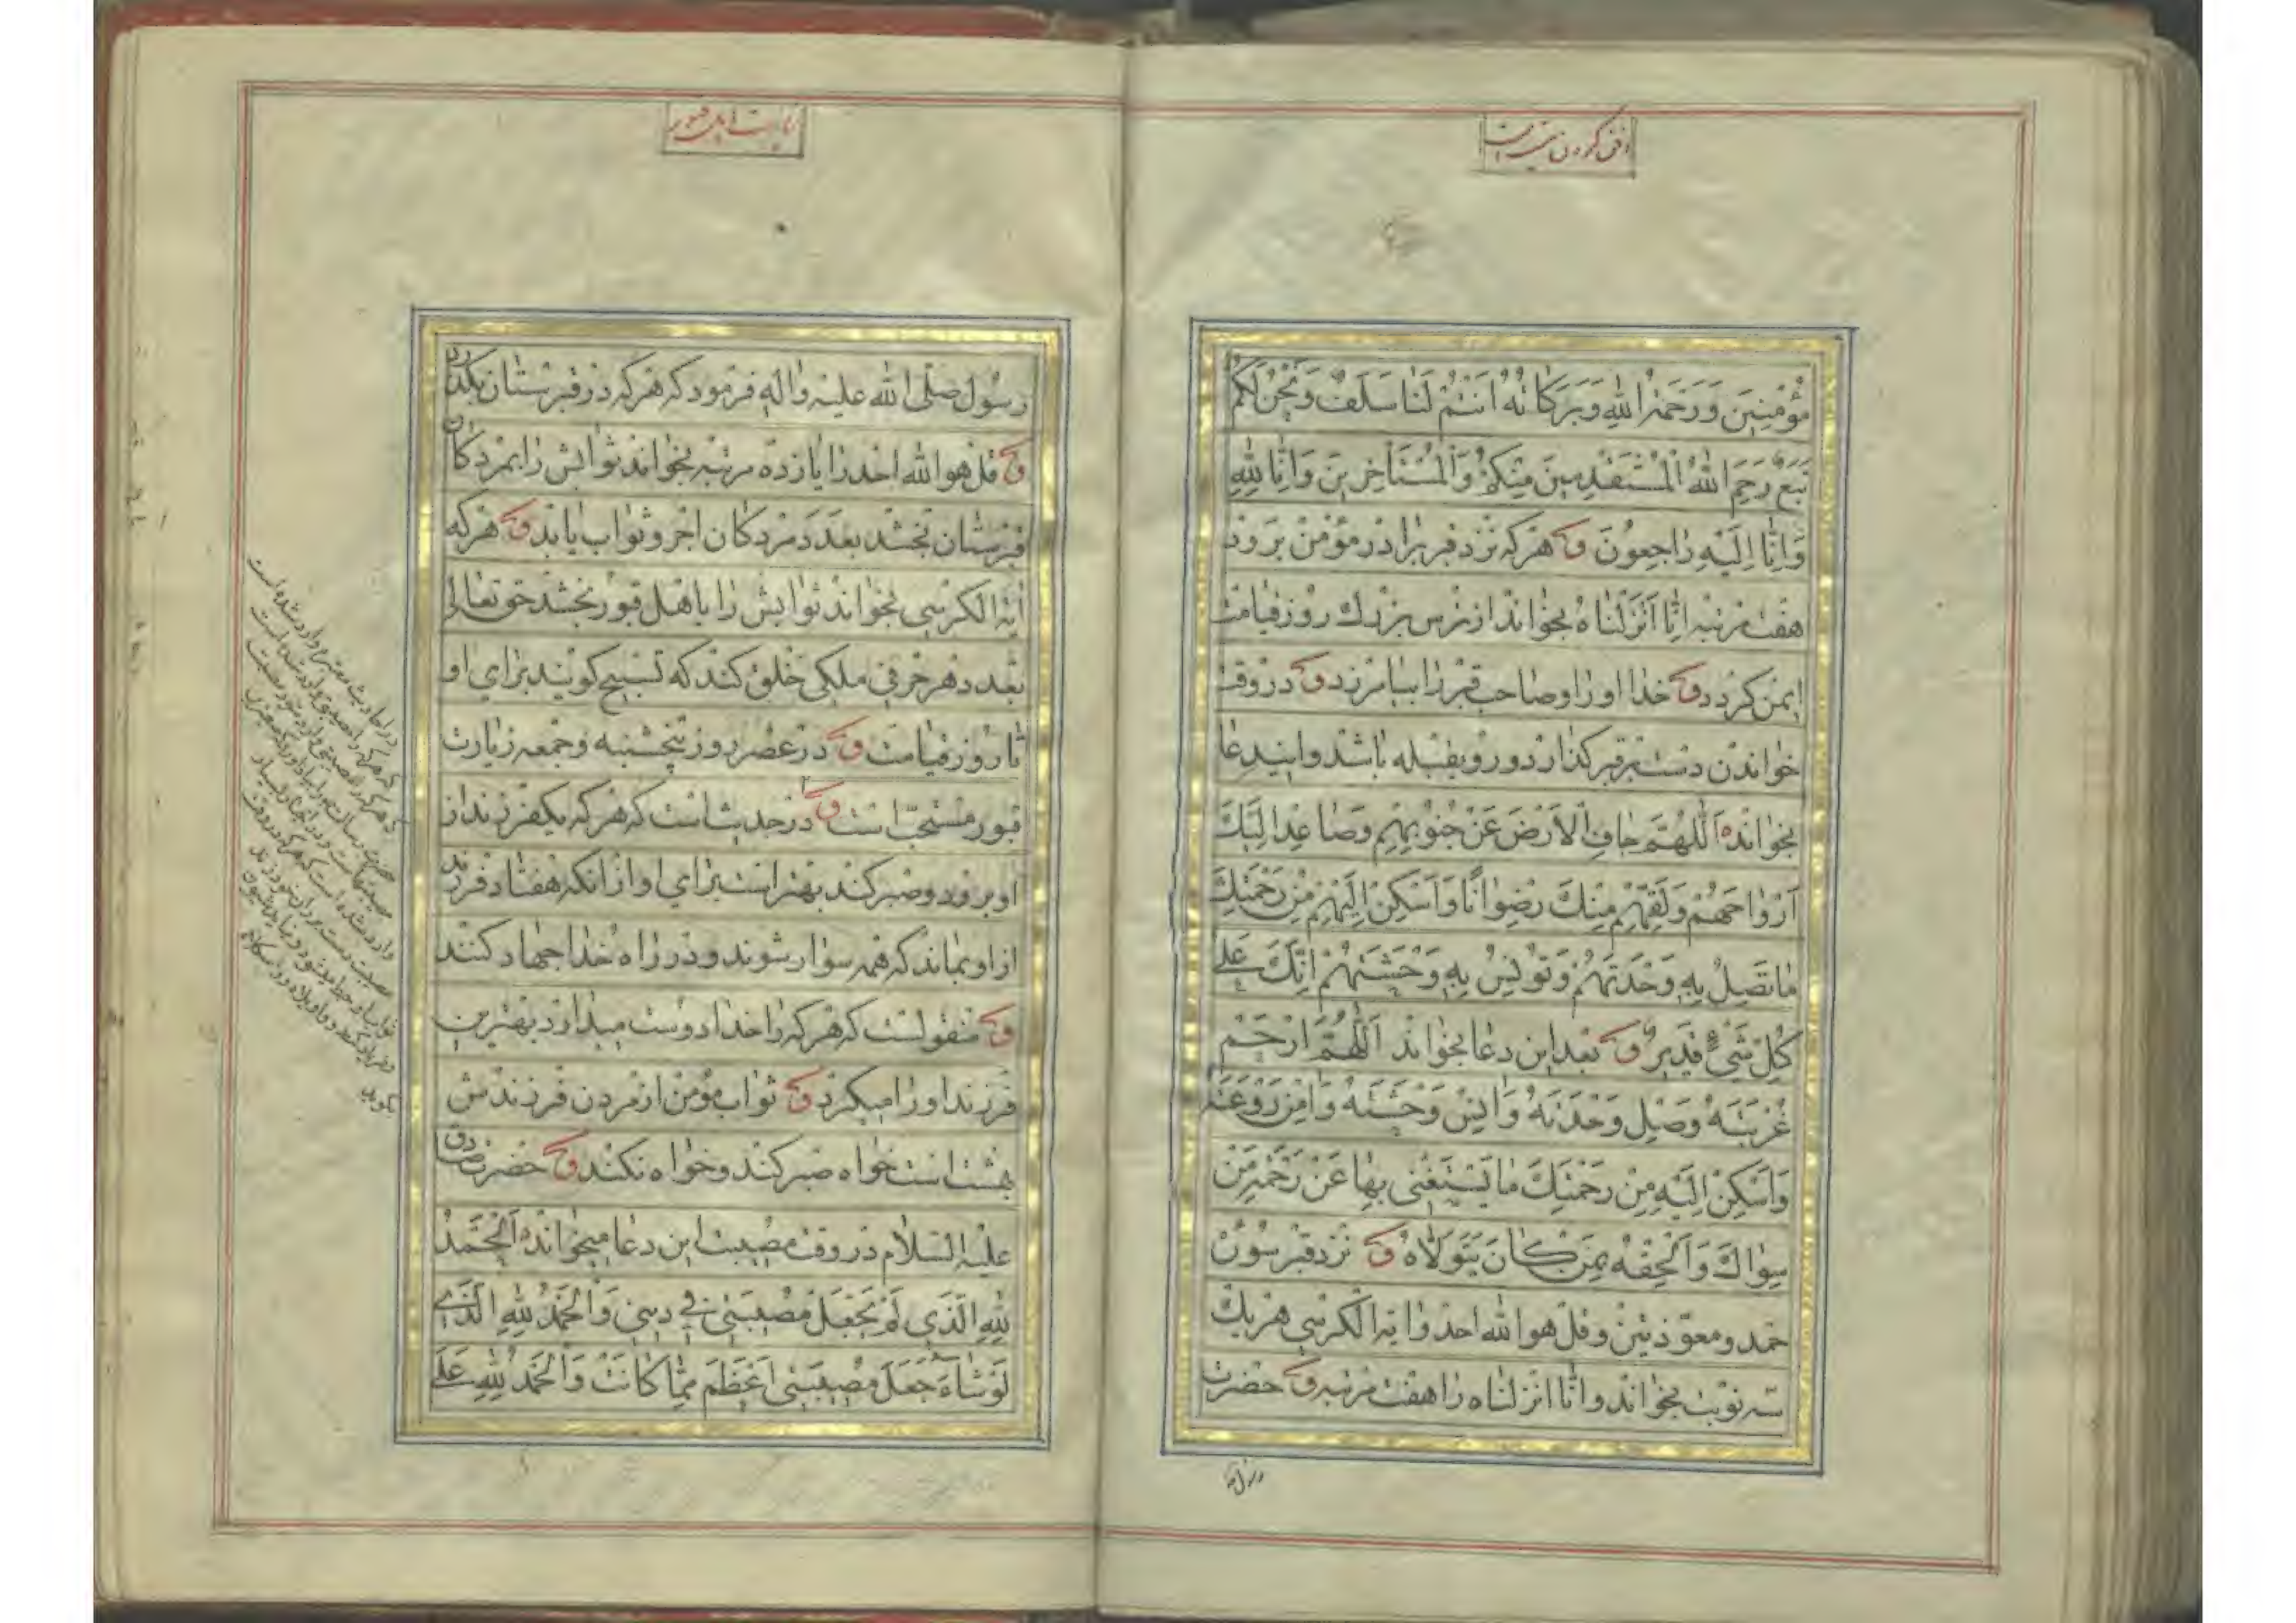 مُؤْمِنِينَ وَرَحْمَةُ اللهِ وَبَرَكَاتُهُ اَنْتُمْ لَنَا سَلَفٌ وَنَحْنُ لَكُمْ
تَبَعٌ رَحِمَ اللهُ الْمُسْتَقْدِمِينَ مِنْكُمْ وَالْمُسْتَأخِرِينَ وَاِنَّا لِلّهِ
وَاِنَّا اِلَيْهِ رَاجِعُونَ و هرکه نزد قبر برادر مؤمن برود
هفت مرتبه اِنّا اَنْزَلْناهُ بخواند از ترس بزرك روز قیامت
ایمن کردد و خدا او را و صاحب قبر را بیامرزد و در وقت
خواندن دست بر قبر کذارد و رو بقبله باشد و ایندعا
بخوانده اَللّهُمَّ جافِ الْاَرْضَ عَنْ جُنُوبِهِمْ وَصاعِدْ اِلَيْكَ
اَرْواحَهُمْ وَلَقِّهِمْ مِنْكَ رِضْواناً وَاَسْكِنْ اِلَيْهِمْ مِنْ رَحْمَتِكَ
ما تَصِلُ بِهِ وَحْدَتَهُمْ وَتُونِسُ بِهِ وَحْشَتَهُمْ اِنَّكَ عَلى
كُلِّ شَيْءٍ قَدِيرٌ و بعد این دعا بخواند اَللّهُمَّ ارْحَمْ
غُرْبَتَهُ وَصِلْ وَحْدَتَهُ وَانِسْ وَحْشَتَهُ وَامِنْ رَوْعَتَهُ
وَاَسْكِنْ اِلَيْهِ مِنْ رَحْمَتِكَ ما يَسْتَغْنِي بِها عَنْ رَحْمَةِ مَنْ
سِواكَ وَاَلْحِقْهُ بِمَنْ كانَ يَتَوَلّاهُ و نزد قبر سورۀ
حمد و معوّذتین و قل هو الله احد و ایة الکرسی هر یك
سه نوبت بخواند و انّا انزلناه را هفت مرتبه و حضرت
زیارت اهل قبور
رسول صلّی الله علیه و اله فرمود که هرکه در قبرستان بکذرد
و قل هو الله احد را یازده مرتبه بخواند ثوابش را بمردکان
قبرستان بخشد بعدد مردکان اجر و ثواب یابد و هرکه
ایة الکرسی بخواند ثوابش را باهل قبور بخشد حق تعالی
بعدد هر حرفی ملکی خلق کند که تسبیح کویند برای او
تا روز قیامت و در عصر روز پنجشنبه و جمعه زیارت
قبور مستحبّ است و در حدیث است که هرکه یکفرزند از
او برود و صبر کند بهتر است برای او از انکه هفتاد فرزند
از او بماند که همه سوار شوند و در راه خدا جهاد کنند
و منقولست که هرکه را خدا دوست میدارد بهترین
فرزند او را میکیرد و ثواب مؤمن از مردن فرزندش
بهشت است خواه صبر کند و خواه نکند و حضرت صادق
علیه السّلام در وقت مصیبت این دعا میخوانده اَلْحَمْدُ
لِلّهِ الَّذِي لَمْ يَجْعَلْ مُصِيبَتِي فِي دِينِي وَالْحَمْدُ لِلّهِ الَّذِي
لَوْ شاءَ جَعَلَ مُصِيبَتِي اَعْظَمَ مِمّا كانَتْ وَالْحَمْدُ لِلّهِ عَلَى